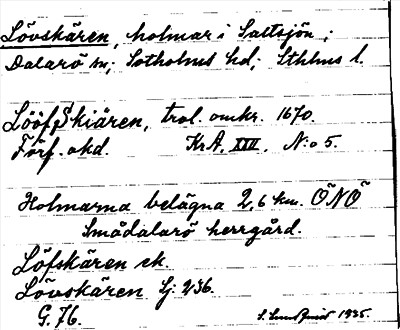 Lövskären, holmar i Saltsjön;
Dalarö sn; Sotholms hd; Sthlms l.
Lööf Skiären, trol. omkr. 1670.
Förf. okd. KrA, XXII, N:o 5.
Holmarna belägna 2,6 km. ÖNÖ
Smådalarö herrgård.
Löfskären ek.
Lövskären Lj. 236.
G. 76. 1935.